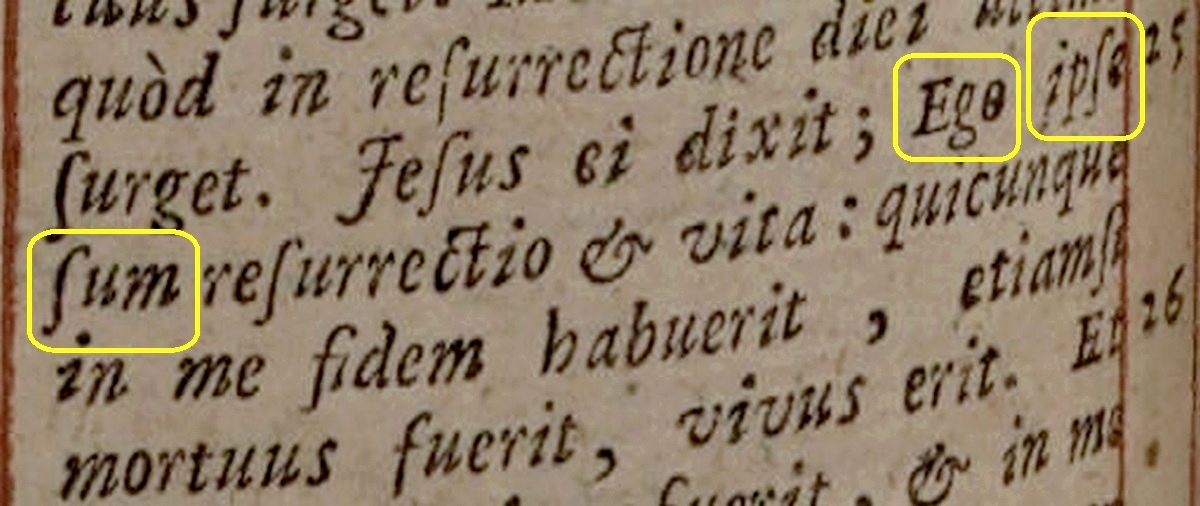 quòd in reſurrectione diei
ſurget. Jeſus ei dixit; Ego ipſe 25
ſum reſurrectio & vita: quicunque
in me fidem habuerit, etiamſi
mortuus fuerit, vivus erit. Et 26
fuerit, & in me